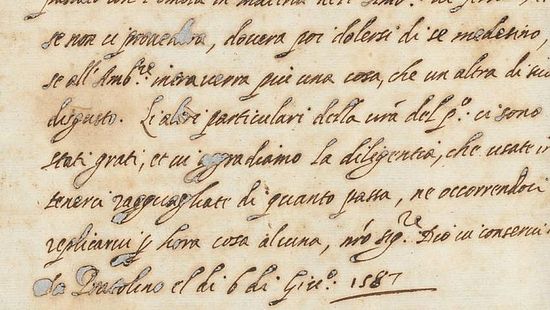 se non ci provederà, doverà poi dolersi di se medesimo,
se all'Amb.re interverrà più una cosa, che un altra di suo
disgusto. Le altri particulari della vra del p.o ci sono
stati grati, et vi gradiamo la diligentia, che usate in
tenerci ragguagliati di quanto passa, ne occorrendoci
replicarvi p hora cosa alcuna, nro sig.re Dio vi conservi
Da Pratolino el dì 6 di Giu.o 1587